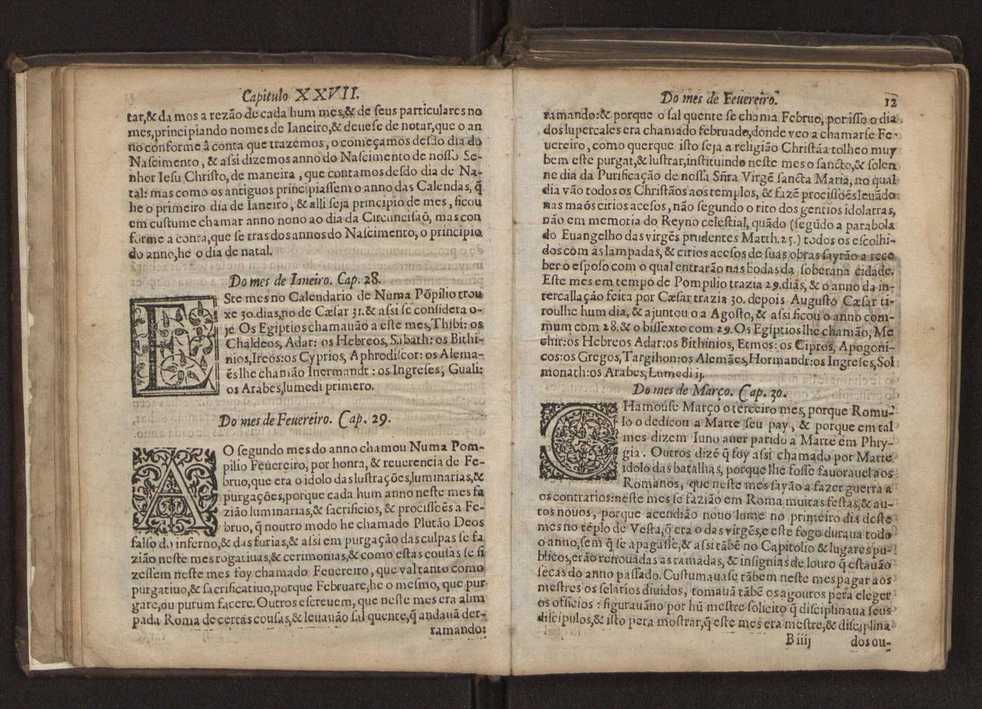 Capitulo XXVII.
tar,& da mos a rezão de cada hum mes,& de seus particulares no
mes,principiando nomes de Ianeiro,& deuese de notar,que o an
no conforme â conta que trazemos, o começamos desdo dia do
Nascimento, & assi dizemos anno do Nascimento de nosso Se-
nhor Iesu Christo, de maneira, que contamos desdo dia de Na-
tal: mas como os antiguos principiassem o anno das Calendas, q̃
he o primeiro dia de Ianeiro, & alli seja principio de mes, ficou
em custume chamar anno nono ao dia da Circuncisaõ, mas con
forme a conta,que se tras dos annos do Nascimento, o principio
do anno,he o dia de natal.
Do mes de Ianeiro. Cap. 28.
ESte mes no Calendario de Numa Põpilio trou
xe 30.dias,no de Cæsar 31.& assi se considera o-
je Os Egiptios chamauão a este mes,Thibi: os
Chaldeos, Adar: os Hebreos, Sabath: os Bithi-
nios,Ireos:os Cyprios, Aphrodiscor: os Alema-
ẽs lhe chamão Inermandt: os Ingreses, Guali:
os Arabes,lumedi primero.
Do mes de Feuereiro. Cap. 29.
AO segundo mes do anno chamou Numa Pom-
pilio Feuereiro, por honra, & reuerencia de Fe-
bruo,que era o idolo das lustrações,luminarias,&
purgações,porque cada hum anno neste mes fa
zião luminarias,& sacrificios, & procissões a Fe-
bruo, q̃ noutro modo he chamado Plutão Deos
falso do inferno,& das furias,& assi em purgação das culpas se fa
zião neste mes rogatiuas,& cerimonias,& como estas cousas se fi
zessem neste mes foy chamado Feuereiro, que val tanto como
purgatiuo,& sacrificatiuo,porque Februare,he o mesmo, que pur
gare,ou purum facere. Outros escreuem, que neste mes era alim
pada Roma de certas cousas,& leuauão sal quente,q̃ andauã der-
ramando:
Do mes de Feuereiro. 12
ramando:& porque o sal quente se chama Februo, por isso o dia
dos lupercales era chamado februado,donde veo a chamarse Fe-
uereiro, como querque isto seja a religião Christãa tolheo muy
bem este purgat,& lustrar,instituindo neste mes o sancto,& solen
ne dia da Purificação de nossa Sñra Virgẽ sancta Maria, no qual
dia vão todos os Christãos aos templos, & fazẽ procissões leuãdo
nas maõs cirios acesos, não segundo o rito dos gentios idolatras,
não em memoria do Reyno celestial, quãdo (segũdo a parabola
do Euangelho das virgẽs prudentes Matth.25.) todos os escolhi-
dos com as lampadas, & cirios acesos de suas obras sayrão a rece
ber o esposo com o qual entrarão nas bodas da soberana cidade.
Este mes em tempo de Pompilio trazia 29.dias, & o anno da in-
tercallação feita por Cæsar trazia 30. depois Augusto Cæsar ti-
roulhe hum dia, & ajuntou o a Agosto, & assi ficou o anno com-
mum com 28.& o bissexto com 29. Os Egiptios lhe chamão, Me
chir:os Hebreos Adar:os Bithinios, Etmos: os Cipros, Apogoni-
cos:os Gregos,Targihon:os Alemães,Hormandt:os Ingreses,Sol
monath:os Arabes,Lumedi ij.
Do mes de Março. Cap. 30.
CHamouse Março o terceiro mes, porque Romu-
lo o dedicou a Matte seu pay, & porque em tal
mes dizem Iuno auer parido a Marte em Phry-
gia. Outros dizẽ q̃ foy assi chamado por Marte
idolo das batalhas, porque lhe fosse fauorauel aos
Romanos, que neste mes sayão a fazer guerra a
os contrarios:neste mes se fazião em Roma muitas festas,& au-
tos nouos, porque acendião nouo lume no primeiro dia deste
mes no tẽplo de Vesta,q̃ era o das virgẽs,e este fogo duraua todo
o anno,sem q̃ se apagasse,& assi tãbẽ no Capitolio & lugares pu-
blicos,erão renouadas as ramadas, & insignias de louro q̃ estauão
secas do anno passado. Custumauase tãbem neste mes pagar aos
mestres os selarios diuidos, tomauã tãbẽ os agouros pera eleger
os officios: figurauãno por hũ mestre solicito q̃ disciplinaua seus
discipulos,& isto pera mostrar,q̃ este mes era mestre,& disciplina
B iiij dos ou-